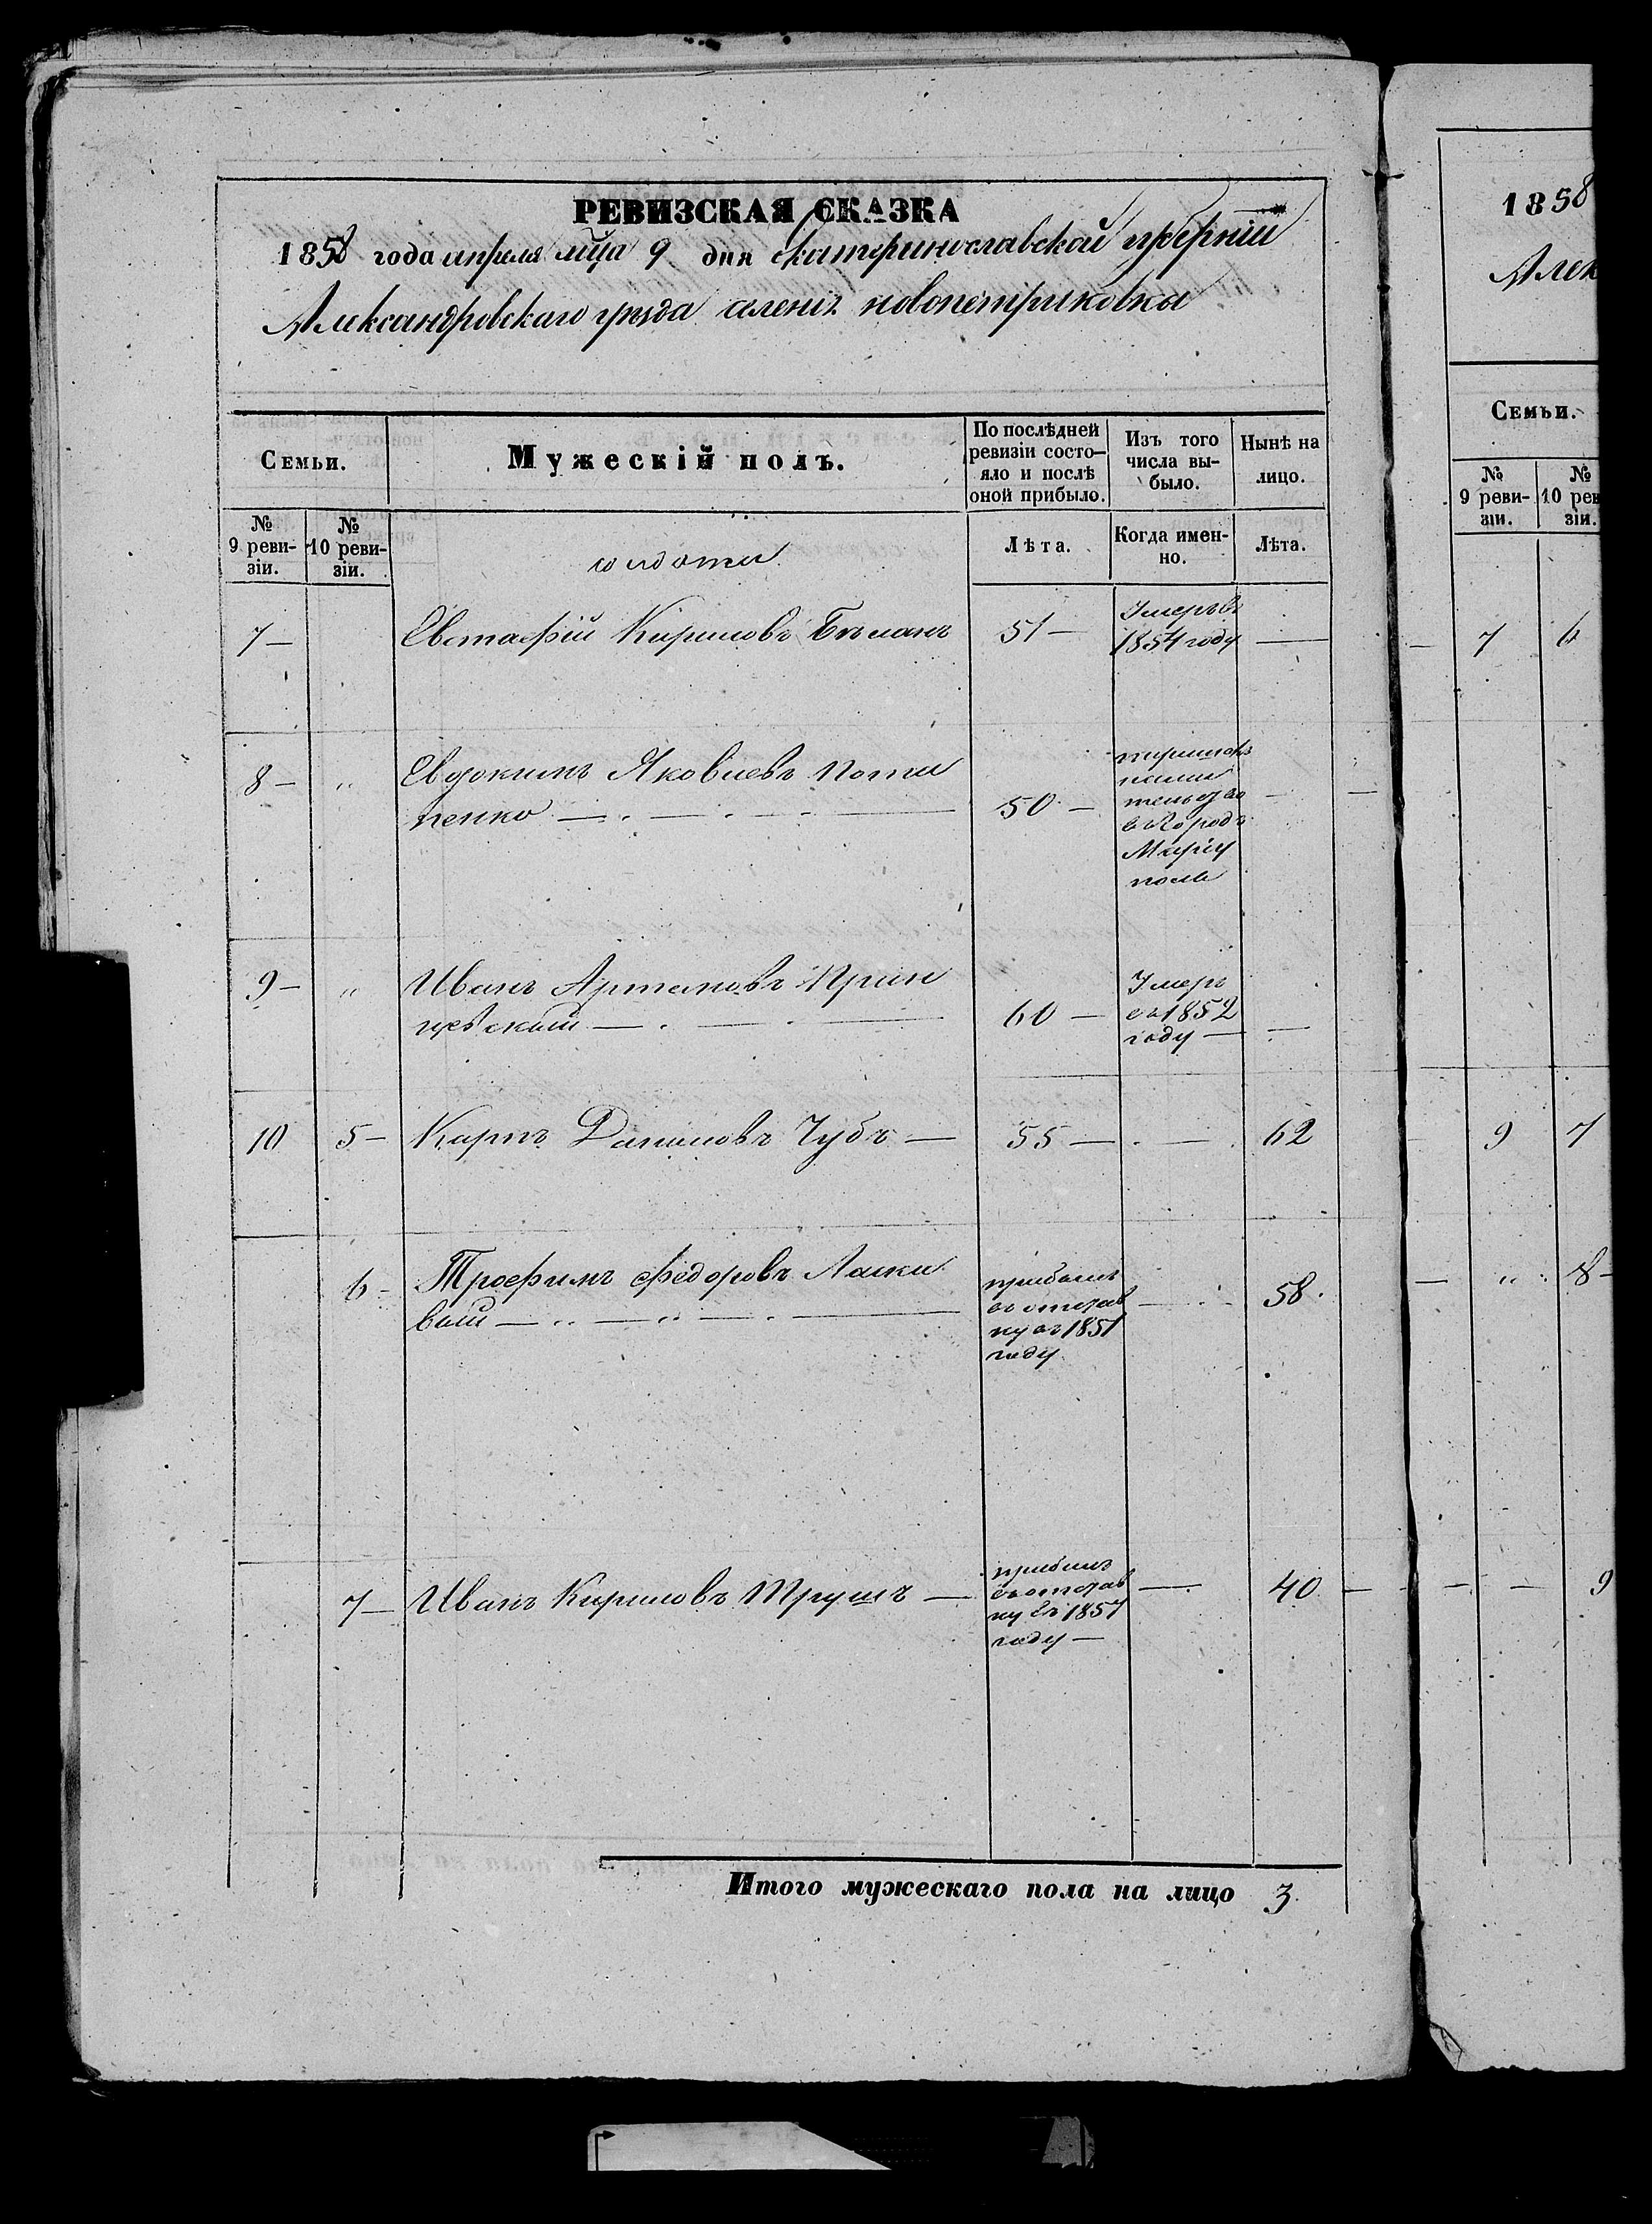 РЕВИЗСКАЯ СКАЗКА
1858 года апреля мца 9 дня екатеринославской губерніи
Александровскаго уезда селенія новопетриковки
Семьи.
Мужескій полъ.
По послѣдней ревизіи состо-
яло и послѣ
оной прибыло.
Изъ того
числа вы-
было.
Нынѣ на
лицо.
№
9 реви-
зіи.
№
10 реви-
зіи.
солдаты
Лѣта.
Когда имен-
но.
Лѣта.
7 — Евстафій Кириловъ 51 — Умеръ въ
1854 году —
8 — " Евдокимъ Яковлевъ Пота
пенко — 50 —
в Городъ
Мариу
поль
9 — " Иванъ Артамовъ
60 — Умеръ
въ 1852
году —
10 5 — Карпъ Даниловъ Чубъ — 55 — — 62
6 — Трофимъ Федоровъ Ласки
вый — прибылъ
въ отстав
ку въ 1851
году — 58
7 — Иванъ Кириловъ Трушъ — прибылъ
въ отстав
ку въ 1857
году — — 40
Итого мужескаго пола на лицо 3
1858
Алек
Семьи.
№
9 реви-
зіи.
№
10 рев
зіи.
7 6
9 7
" 8
9